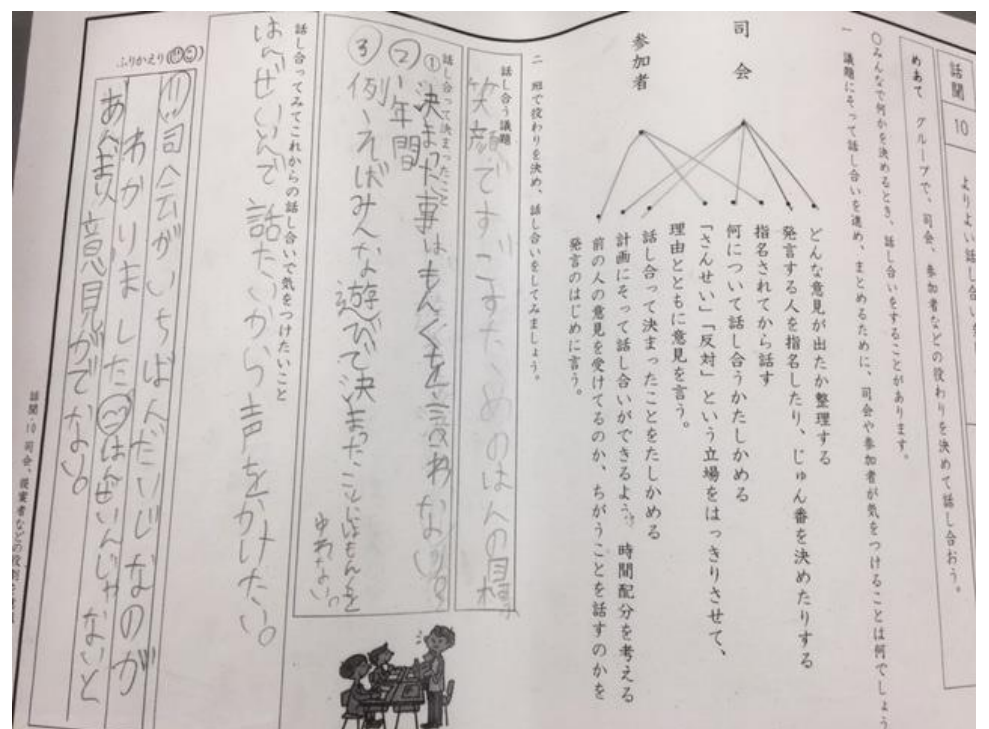 話聞
10
よりよい話し合い
めあて グループで、司会、参加者などの役わりを決めて話し合おう。
○みんなで何かを決めるとき、話し合いをすることがあります。
一 議題にそって話し合いを進め、まとめるために、司会や参加者が気をつけることは何でしょう
司会
参加者
どんな意見が出たか整理する
発言する人を指名したり、じゅん番を決めたりする
指名されてから話す
何について話し合うかたしかめる
「さんせい」「反対」という立場をはっきりさせて、
理由とともに意見を言う。
話し合って決まったことをたしかめる
計画にそって話し合いができるよう、時間配分を考える
前の人の意見を受けてるのか、ちがうことを話すのかを
発言のはじめに言う。
二 班で役わりを決め、話し合いをしてみましょう。
話し合う議題
笑顔ですごすためのはんの目標
話し合って決まったこと
①決まった事はもんくを言わない。
②一年間
③例えばみんな遊びで決まったことはもんくを
ゆわない。
話し合ってみてこれからの話し合いで気をつけたいこと
はんぜいいんで話たいから声をかけたい。
ふりかえり
司会がいちばんだいじなのが
わかりました はんぜいいんじゃないと
あんまり意見がでない。
話聞・10 司会、提案者などの役割を